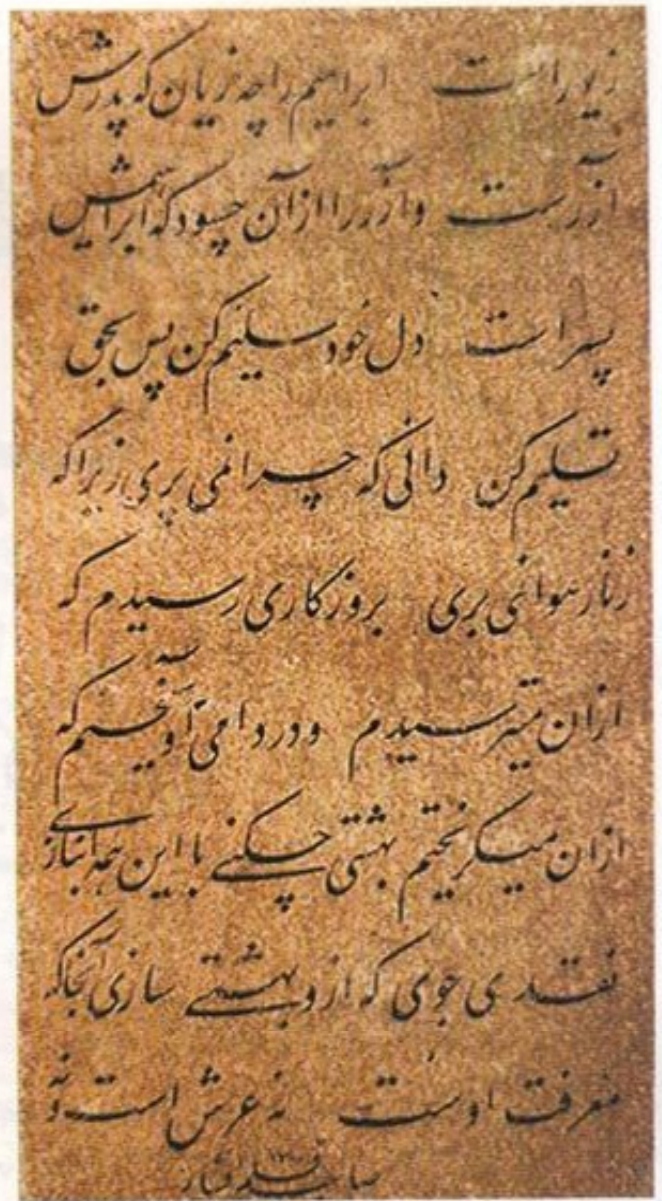 زیور است ابراهیم را چه زیان که پدرش
آزر است و آزر را از آن چسود که ابراهیمش
پسر است دل خود سلیم کن پس بحق
تسلیم کن دانی که چرا نمی پری زیرا که
زنار هوا نمی بری بروزگاری رسیدم که
ازان میترسیدم و در دامی آویختم که
ازان میگریختم بهشتی چکنی با این همه انبازی
نقدی جوی که ازو بهشتی سازی آنجا که
معرفت اوست نه عرش است و نه